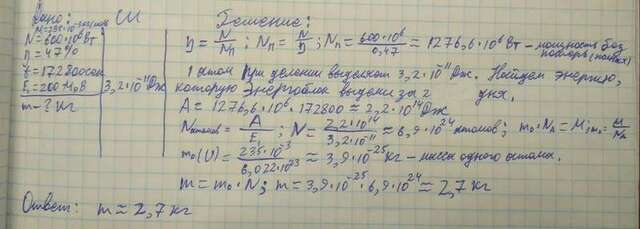 Дано: СИ Решение:
M=235·10⁻³кг/моль
N=600·10⁶Вт
η=47%
t=172800сек
E₁=200МэВ 3,2·10⁻¹¹Дж
m-? кг
η = N/Nп; Nп = N/η; Nп = 600·10⁶/0,47 ≈ 1276,6·10⁶ Вт - мощность без
1 атом при делении выделяет 3,2·10⁻¹¹Дж. Найдем энергию,
которую энергоблок выделил за 2 дня.
A = 1276,6·10⁶·172800 ≈ 2,2·10¹⁴Дж
Nатомов = A/E; N = 2,2·10¹⁴/3,2·10⁻¹¹ ≈ 6,9·10²⁴ атомов; m₀·Nₐ = M; m₀ = M/Nₐ
m₀(U) = 235·10⁻³/6,022·10²³ ≈ 3,9·10⁻²⁵кг - масса одного атома.
m = m₀·N; m = 3,9·10⁻²⁵·6,9·10²⁴ ≈ 2,7кг
Ответ: m ≈ 2,7 кг